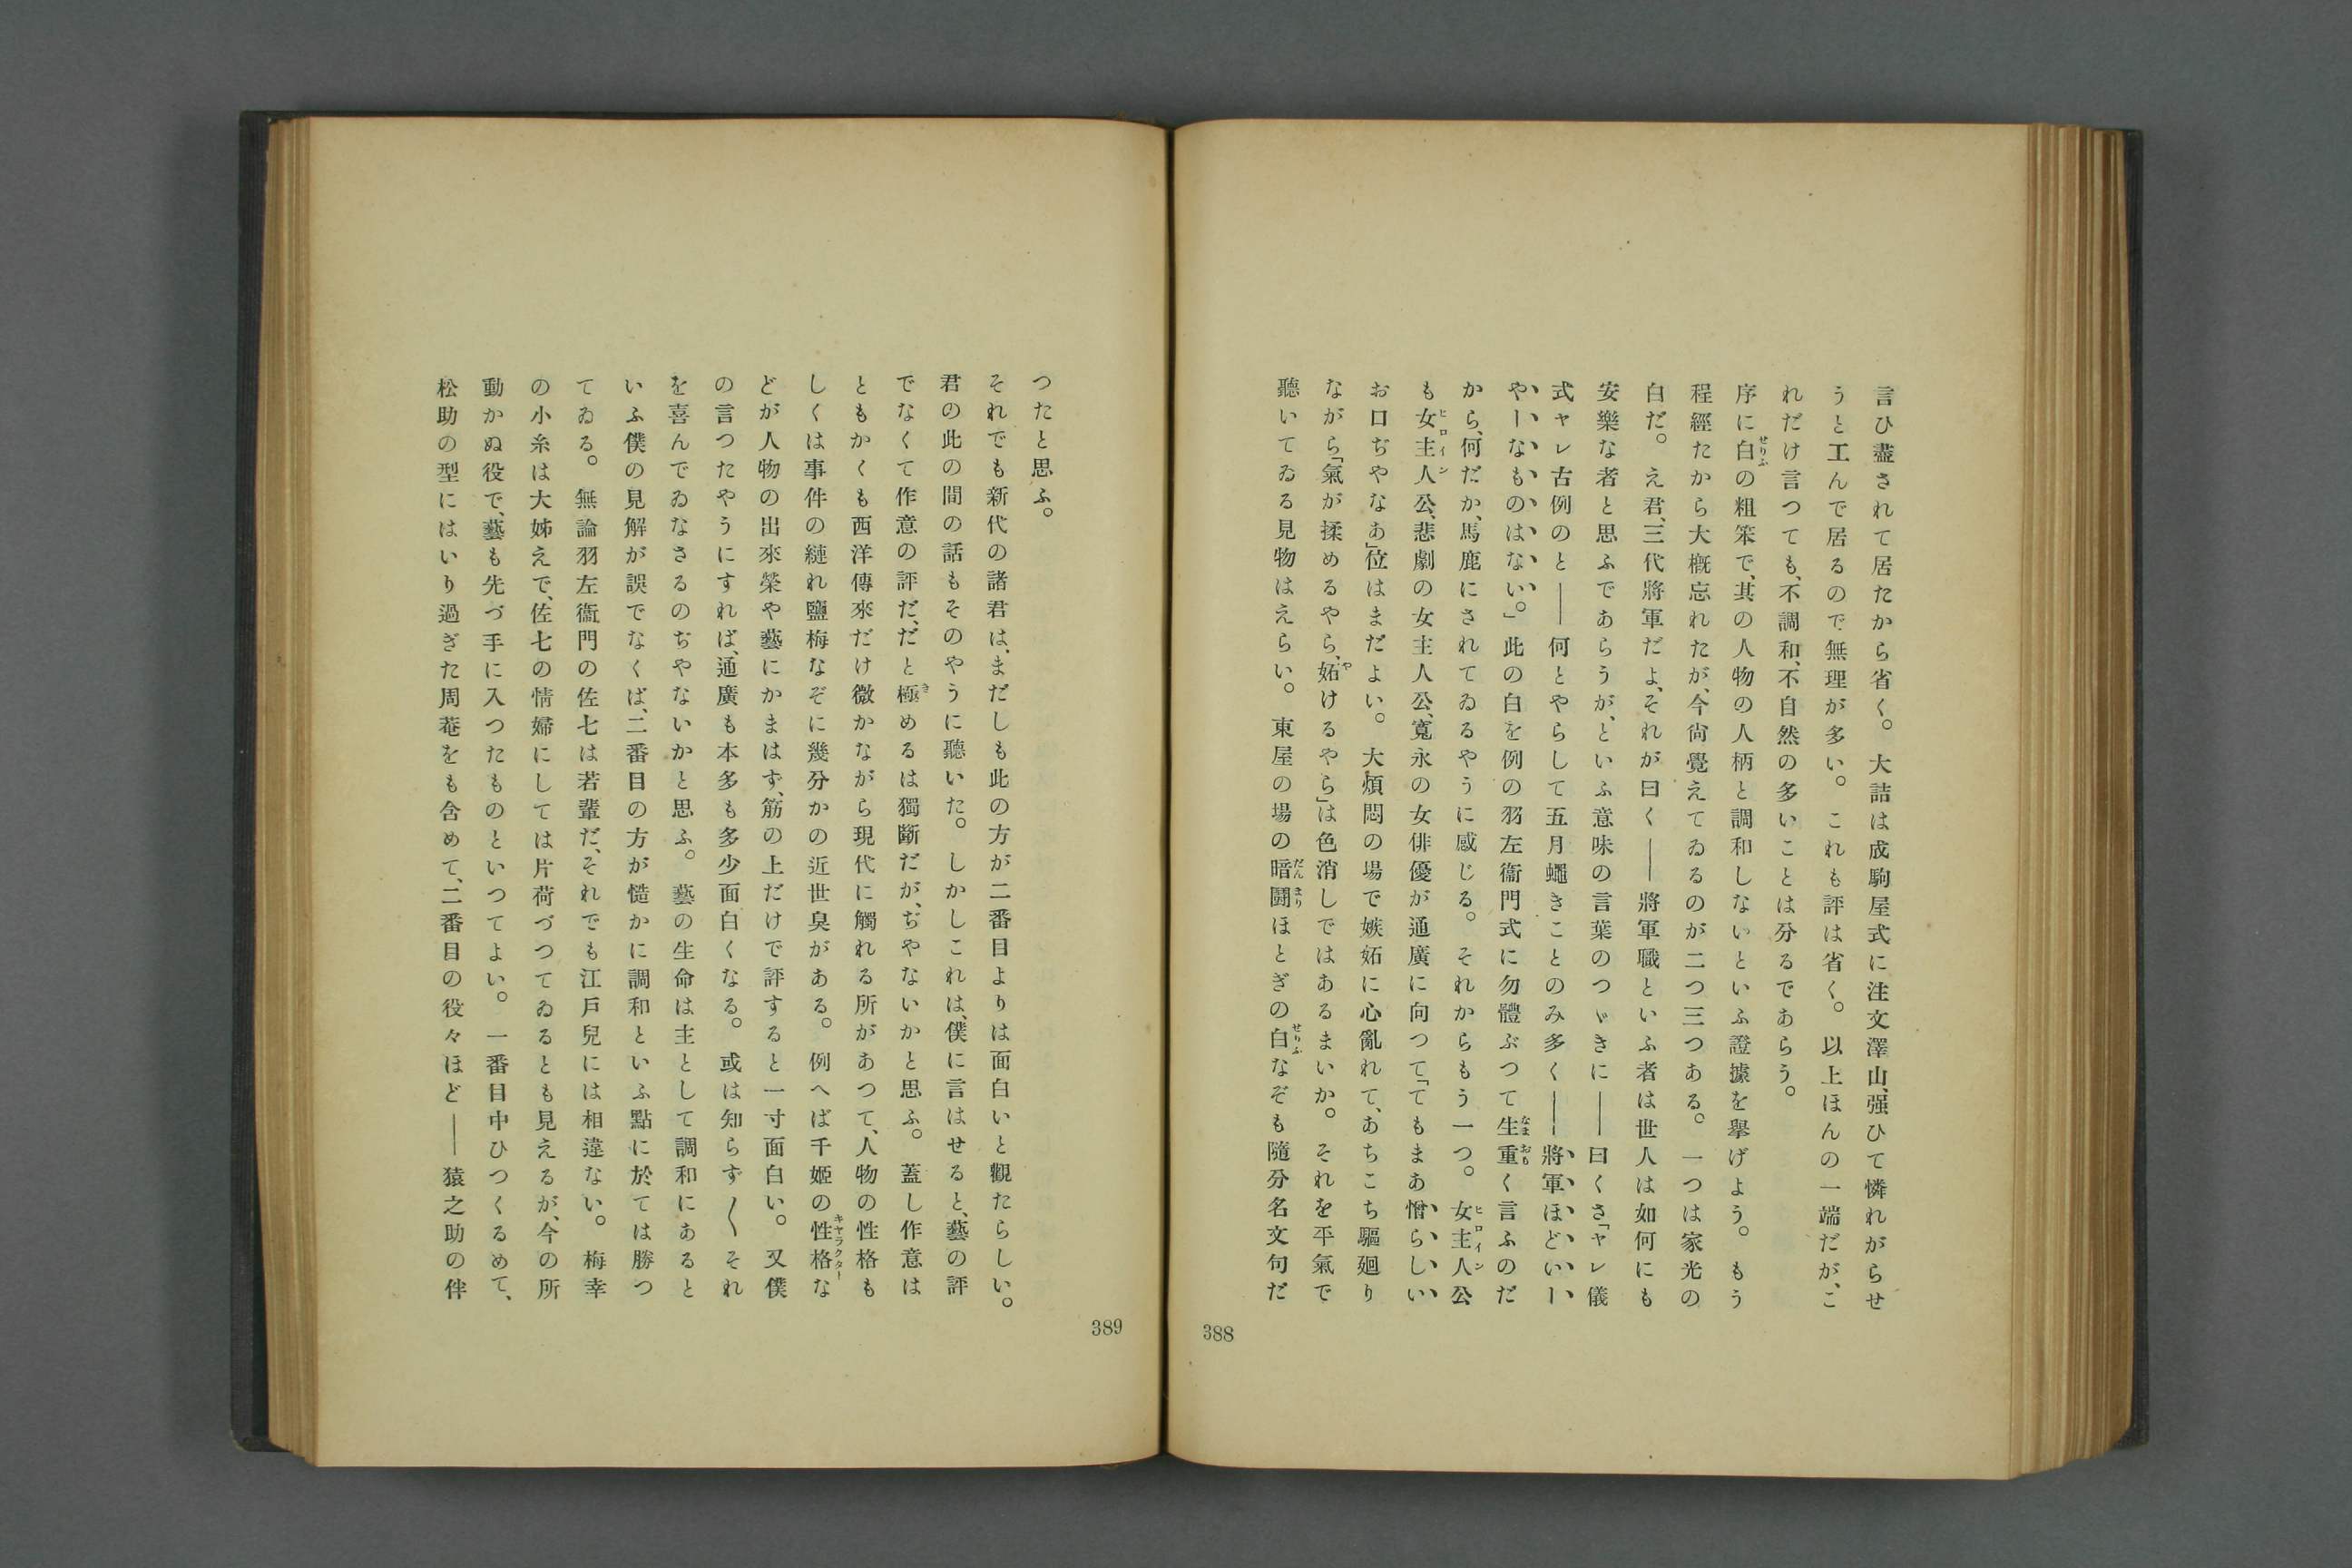 言ひ盡されて居たから省く。大詰は成駒屋式に注文澤山、强ひて憐れがらせ
うと工んで居るので無理が多い。これも評は省く。以上ほんの一端だが、こ
れだけ言つても、不調和、不自然の多いことは分るであらう。
序に白の粗笨で、其の人物の人柄と調和しないといふ證據を擧げよう。もう
程經たから大槪忘れたが、今尙覺えてゐるのが二つ三つある。一つは家光の
白だ。え君、三代將軍だよ、それが曰く――將軍職といふ者は世人は如何にも
安樂な者と思ふであらうが、といふ意味の言葉のつゞきに――曰くさ「ヤレ儀
式ヤレ古例のと――何とやらして五月蠅きことのみ多く――將軍ほどいー
やーなものはない。」此の白を例の羽左衞門式に勿體ぶつて生重く言ふのだ
から、何だか、馬鹿にされてゐるやうに感じる。それからもう一つ。女主人公
も女主人公、悲劇の女主人公、寬永の女俳優が通廣に向つて「てもまあ憎らしい
お口ぢやなあ」位はまだよい。大煩悶の場で嫉妬に心亂れて、あちこち驅廻り
ながら「氣が揉めるやら、妬けるやら」は色消しではあるまいか。それを平氣で
聽いてゐる見物はえらい。東屋の場の暗鬪ほとぎの白なぞも隨分名文句だ
388
つたと思ふ。
それでも新代の諸君は、まだしも此の方が二番目よりは面白いと觀たらしい。
君の此の間の話もそのやうに聽いた。しかしこれは、僕に言はせると、藝の評
でなくて作意の評だ、だと極めるは獨斷だが、ぢやないかと思ふ。蓋し作意は
ともかくも西洋傳來だけ微かながら現代に觸れる所があつて、人物の性格も
しくは事件の縺れ鹽梅なぞに幾分かの近世臭がある。例へば千姬の性格な
どが人物の出來榮や藝にかまはず、筋の上だけで評すると一寸面白い。又僕
の言つたやうにすれば、通廣も本多も多少面白くなる。或は知らず〱それ
を喜んでゐなさるのぢやないかと思ふ。藝の生命は主として調和にあると
いふ僕の見解が誤でなくば、二番目の方が慥かに調和といふ點に於ては勝つ
てゐる。無論羽左衞門の佐七は若輩だ、それでも江戶兒には相違ない。梅幸
の小糸は大姊えで、佐七の情婦にしては片荷づつてゐるとも見えるが、今の所
動かぬ役で、藝も先づ手に入つたものといつてよい。一番目中ひつくるめて、
松助の型にはいり過ぎた周菴をも含めて、二番目の役々ほど――猿之助の伴
389